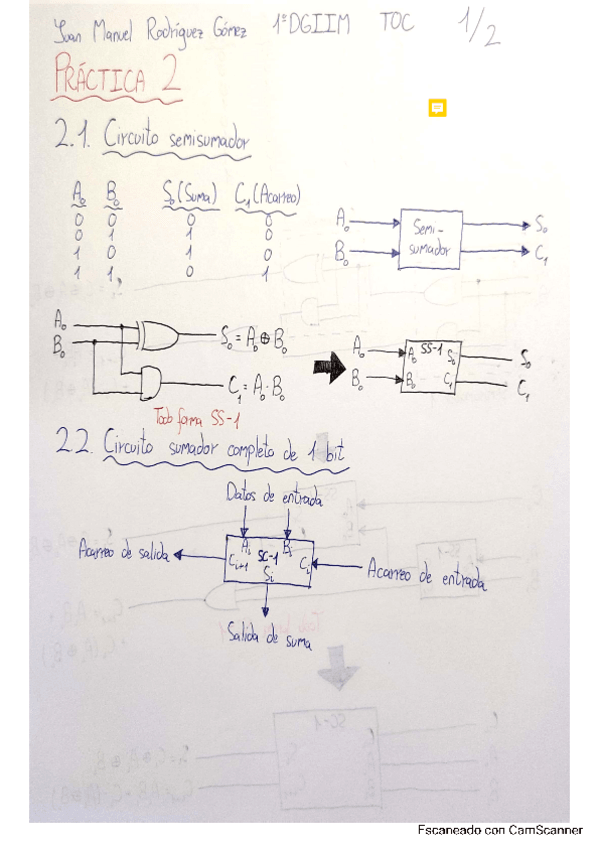 Juan Manuel Rodríguez Gómez 1ºDGIIM TOC 1/2
PRÁCTICA 2
2.1. Circuito semisumador
A₀ B₀ S₀(Suma) C₁(Acarreo)
0 0 0 0
0 1 1 0
1 0 1 0
1 1 0 1
A₀ Semi- S₀
B₀ sumador C₁
A₀ S₀ = A₀ ⊕ B₀
B₀ C₁ = A₀ · B₀
A₀ A₀ SS-1 S₀ S₀
B₀ B₀ C₁ C₁
Todo forma SS-1
2.2. Circuito sumador completo de 1 bit
Datos de entrada
Aᵢ Bᵢ
Acarreo de salida Cᵢ₊₁ SC-1 Cᵢ Acarreo de entrada
Sᵢ
Salida de suma
Escaneado con CamScanner